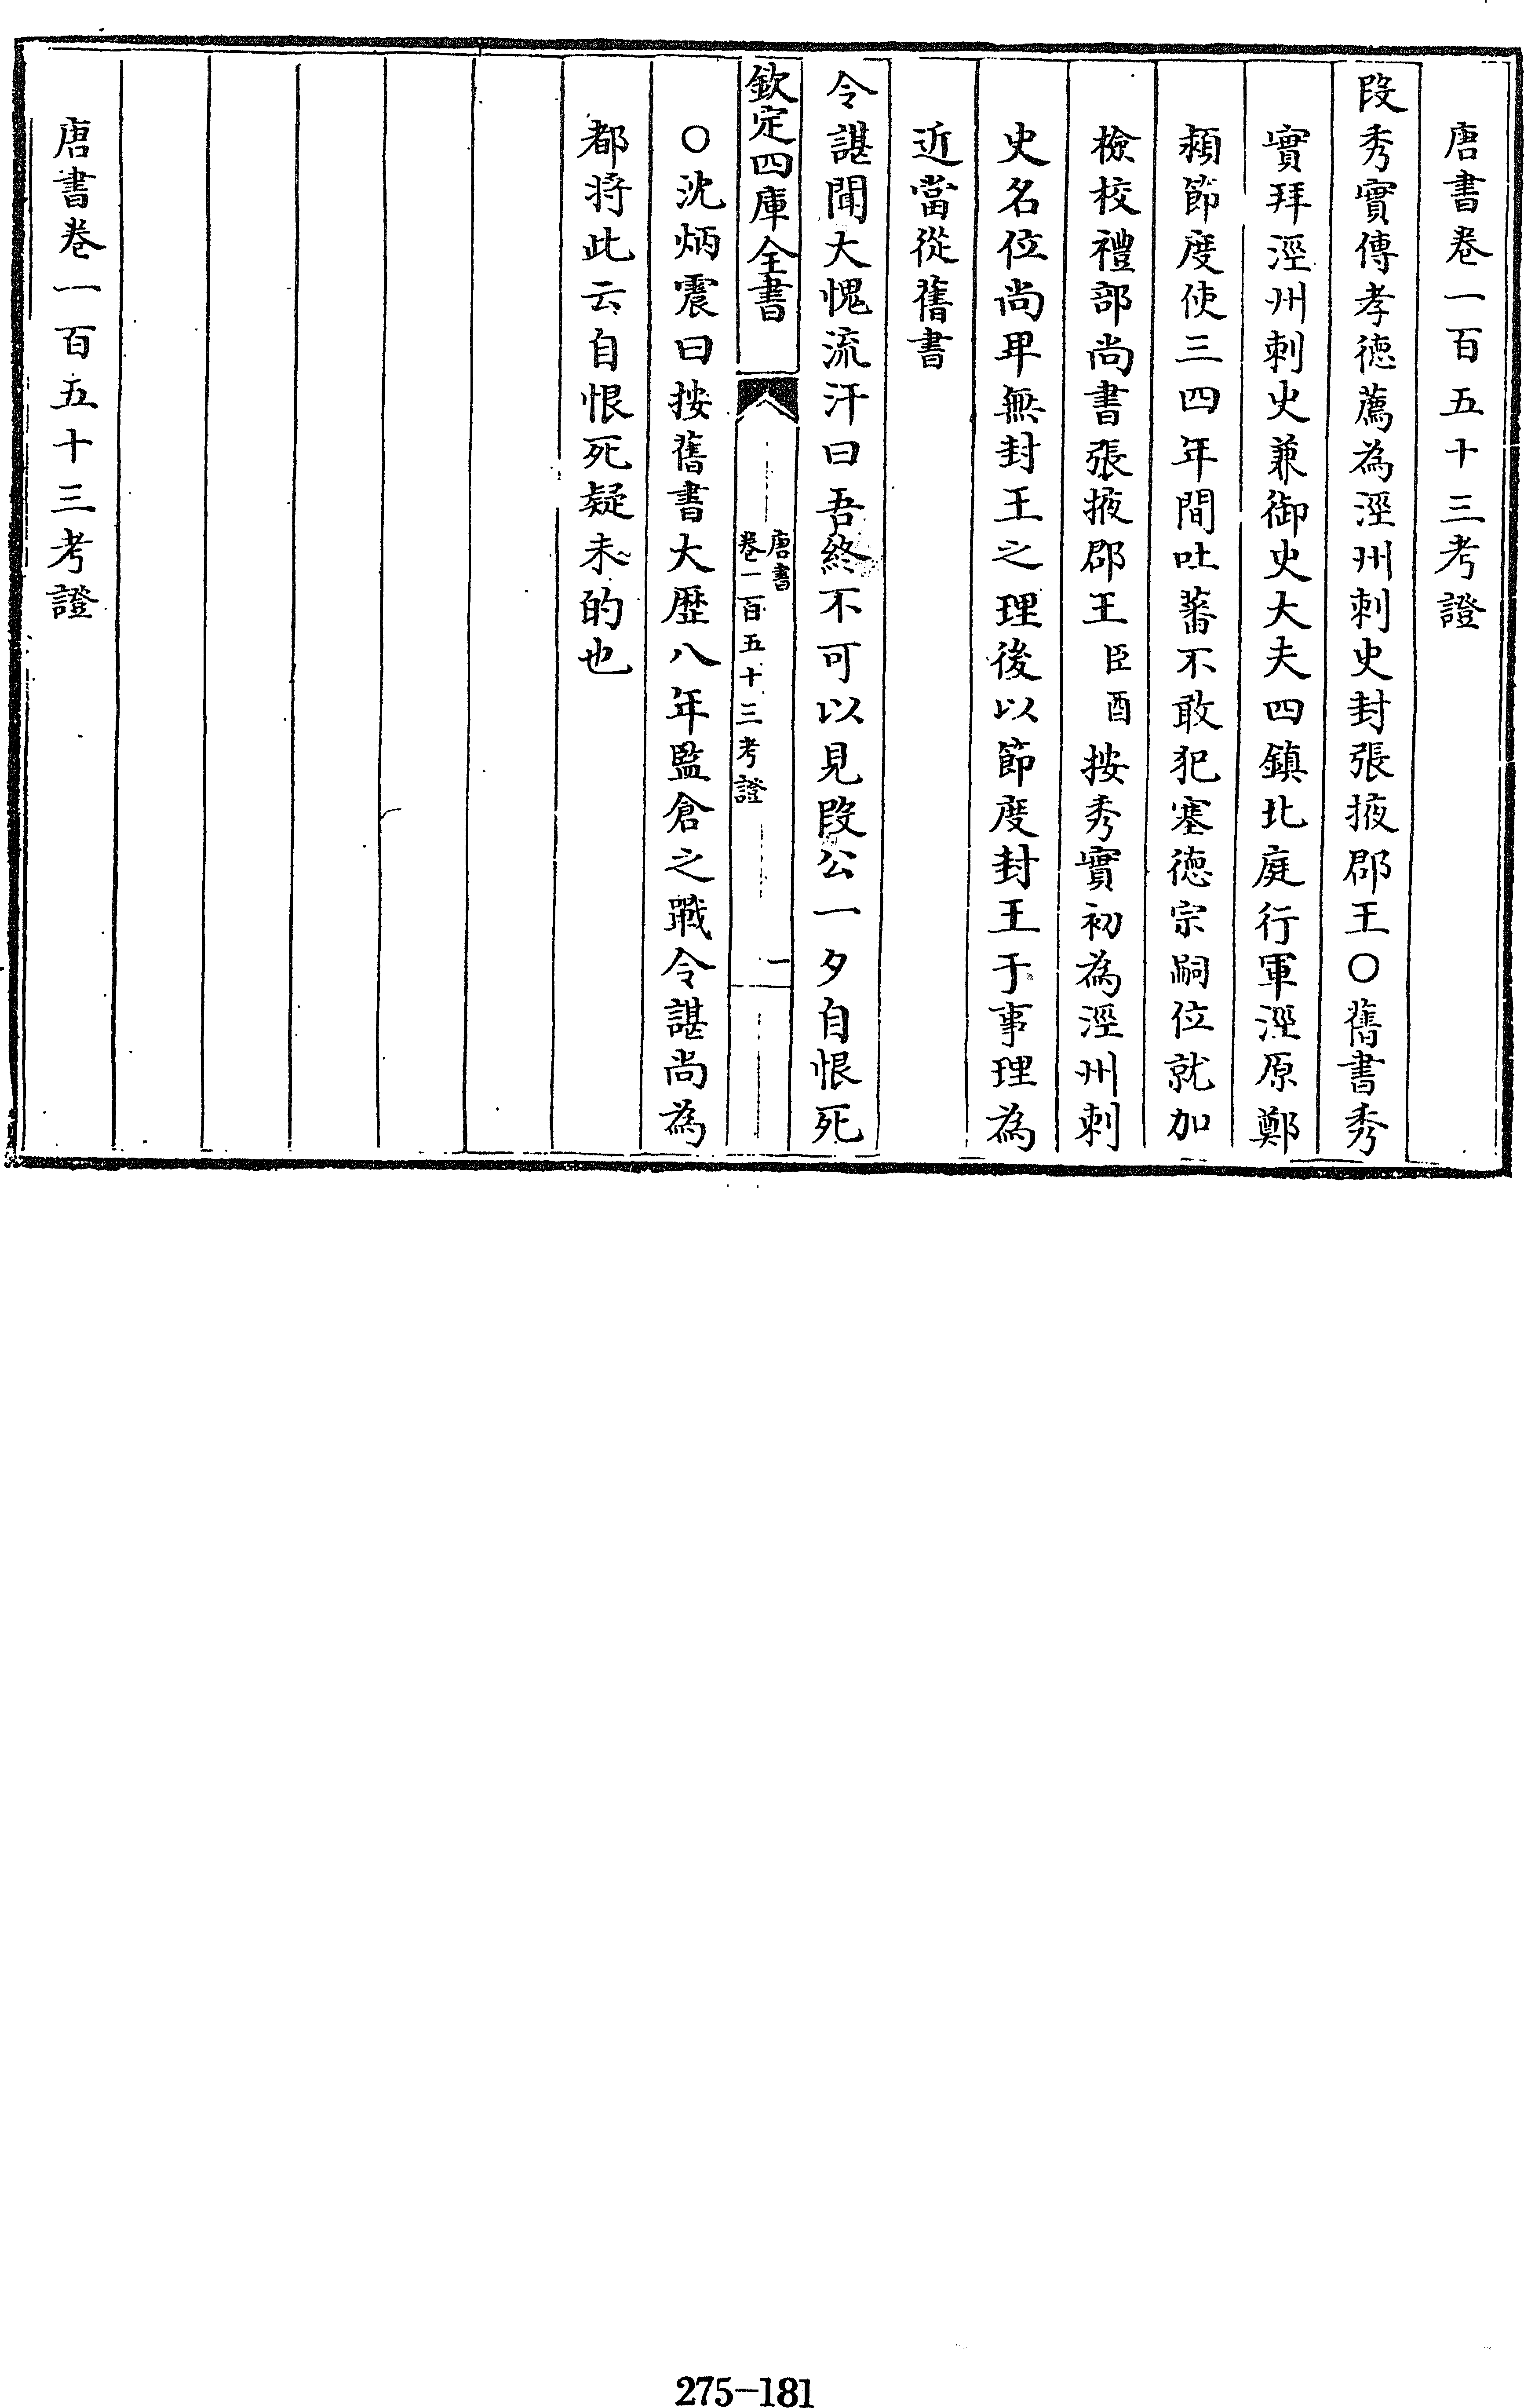 唐書卷一百五十三考證
段秀實傳孝徳薦為涇州刺史封張掖郡王○舊書秀
實拜涇州刺史兼御史大夫四鎮北庭行軍涇原鄭
頻節度使三四年間吐蕃不敢犯塞德宗嗣位就加
檢校禮部尚書張掖郡王臣酉按秀實初為涇州刺
史名位尚卑無封王之理後以節度封王于事理為
近當從舊書
令諶聞大愧流汗曰吾終不可以見段公一夕自恨死
欽定四庫全書
唐書
卷一百五十三考證
一
○沈炳震曰按舊書大歷八年監倉之戰令諶尚為
都将此云自恨死疑未的也
唐書卷一百五十三考證
275-181